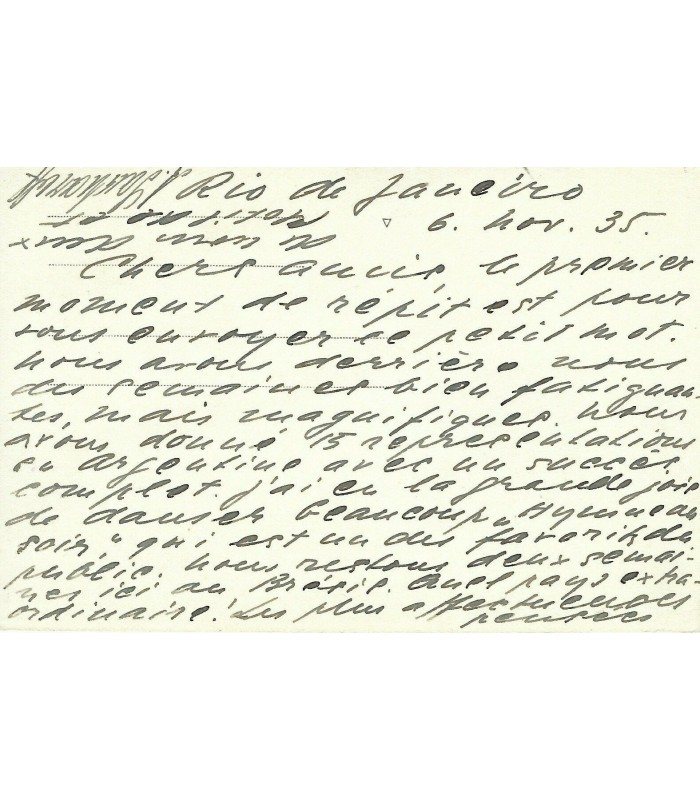 Rio de Janeiro
6. nov. 35.
Chers amis, le premier
moment de répit est pour
vous envoyer ce petit mot.
Nous avons derrière nous
des semaines bien fatiguan-
tes, mais magnifiques. Nous
avons donné 15 représentations
en Argentine avec un succès
complet. J'ai eu la grande joie
de danser beaucoup „Hymne au
soir" qui est un des favorits du
public. Nous restons deux semai-
nes ici au Brésil. Quel pays extra-
ordinaire! Les plus affectueuses
pensées